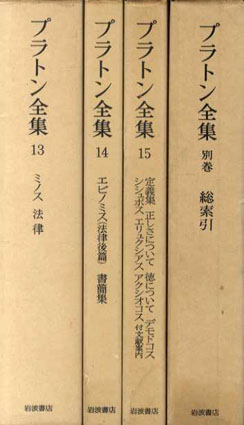 プラトン全集
13
ミノス 法律
岩波書店
プラトン全集
14
エピノミス(法律後篇) 書簡集
岩波書店
プラトン全集
15
定義集 正しさについて 徳について デモドコス
シシュポス エリュクシアス アクシオコス 付文献案内
岩波書店
プラトン全集
別巻
総索引
岩波書店